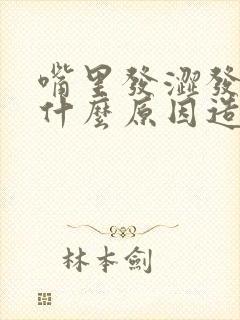 嘴里發澀發
什麼原因造
林本劍